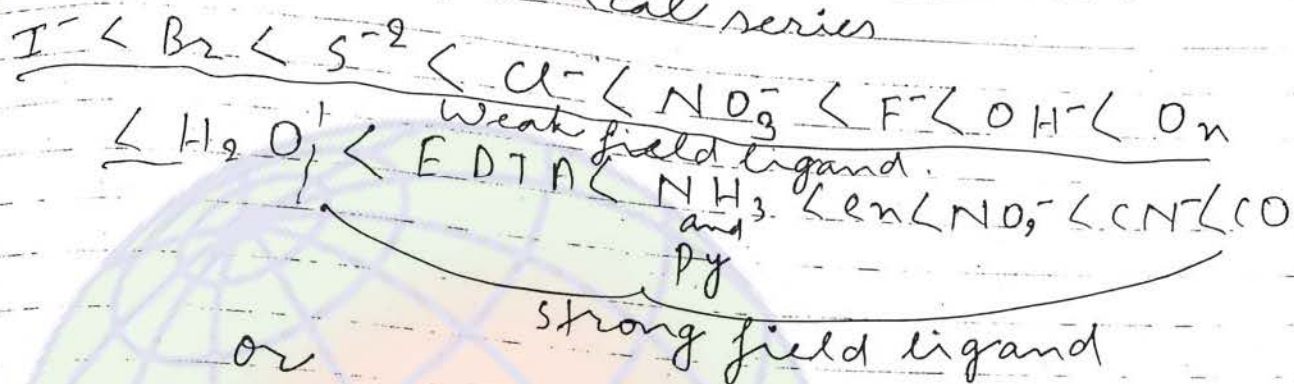 cal series
I⁻ < Br < S⁻² < Cl⁻ < NO₃⁻ < F⁻ < OH⁻ < Ox
Weak field ligand.
< H₂O < EDTA < NH₃ < en < NO₂⁻ < CN⁻ < CO
and
py
strong field ligand
or